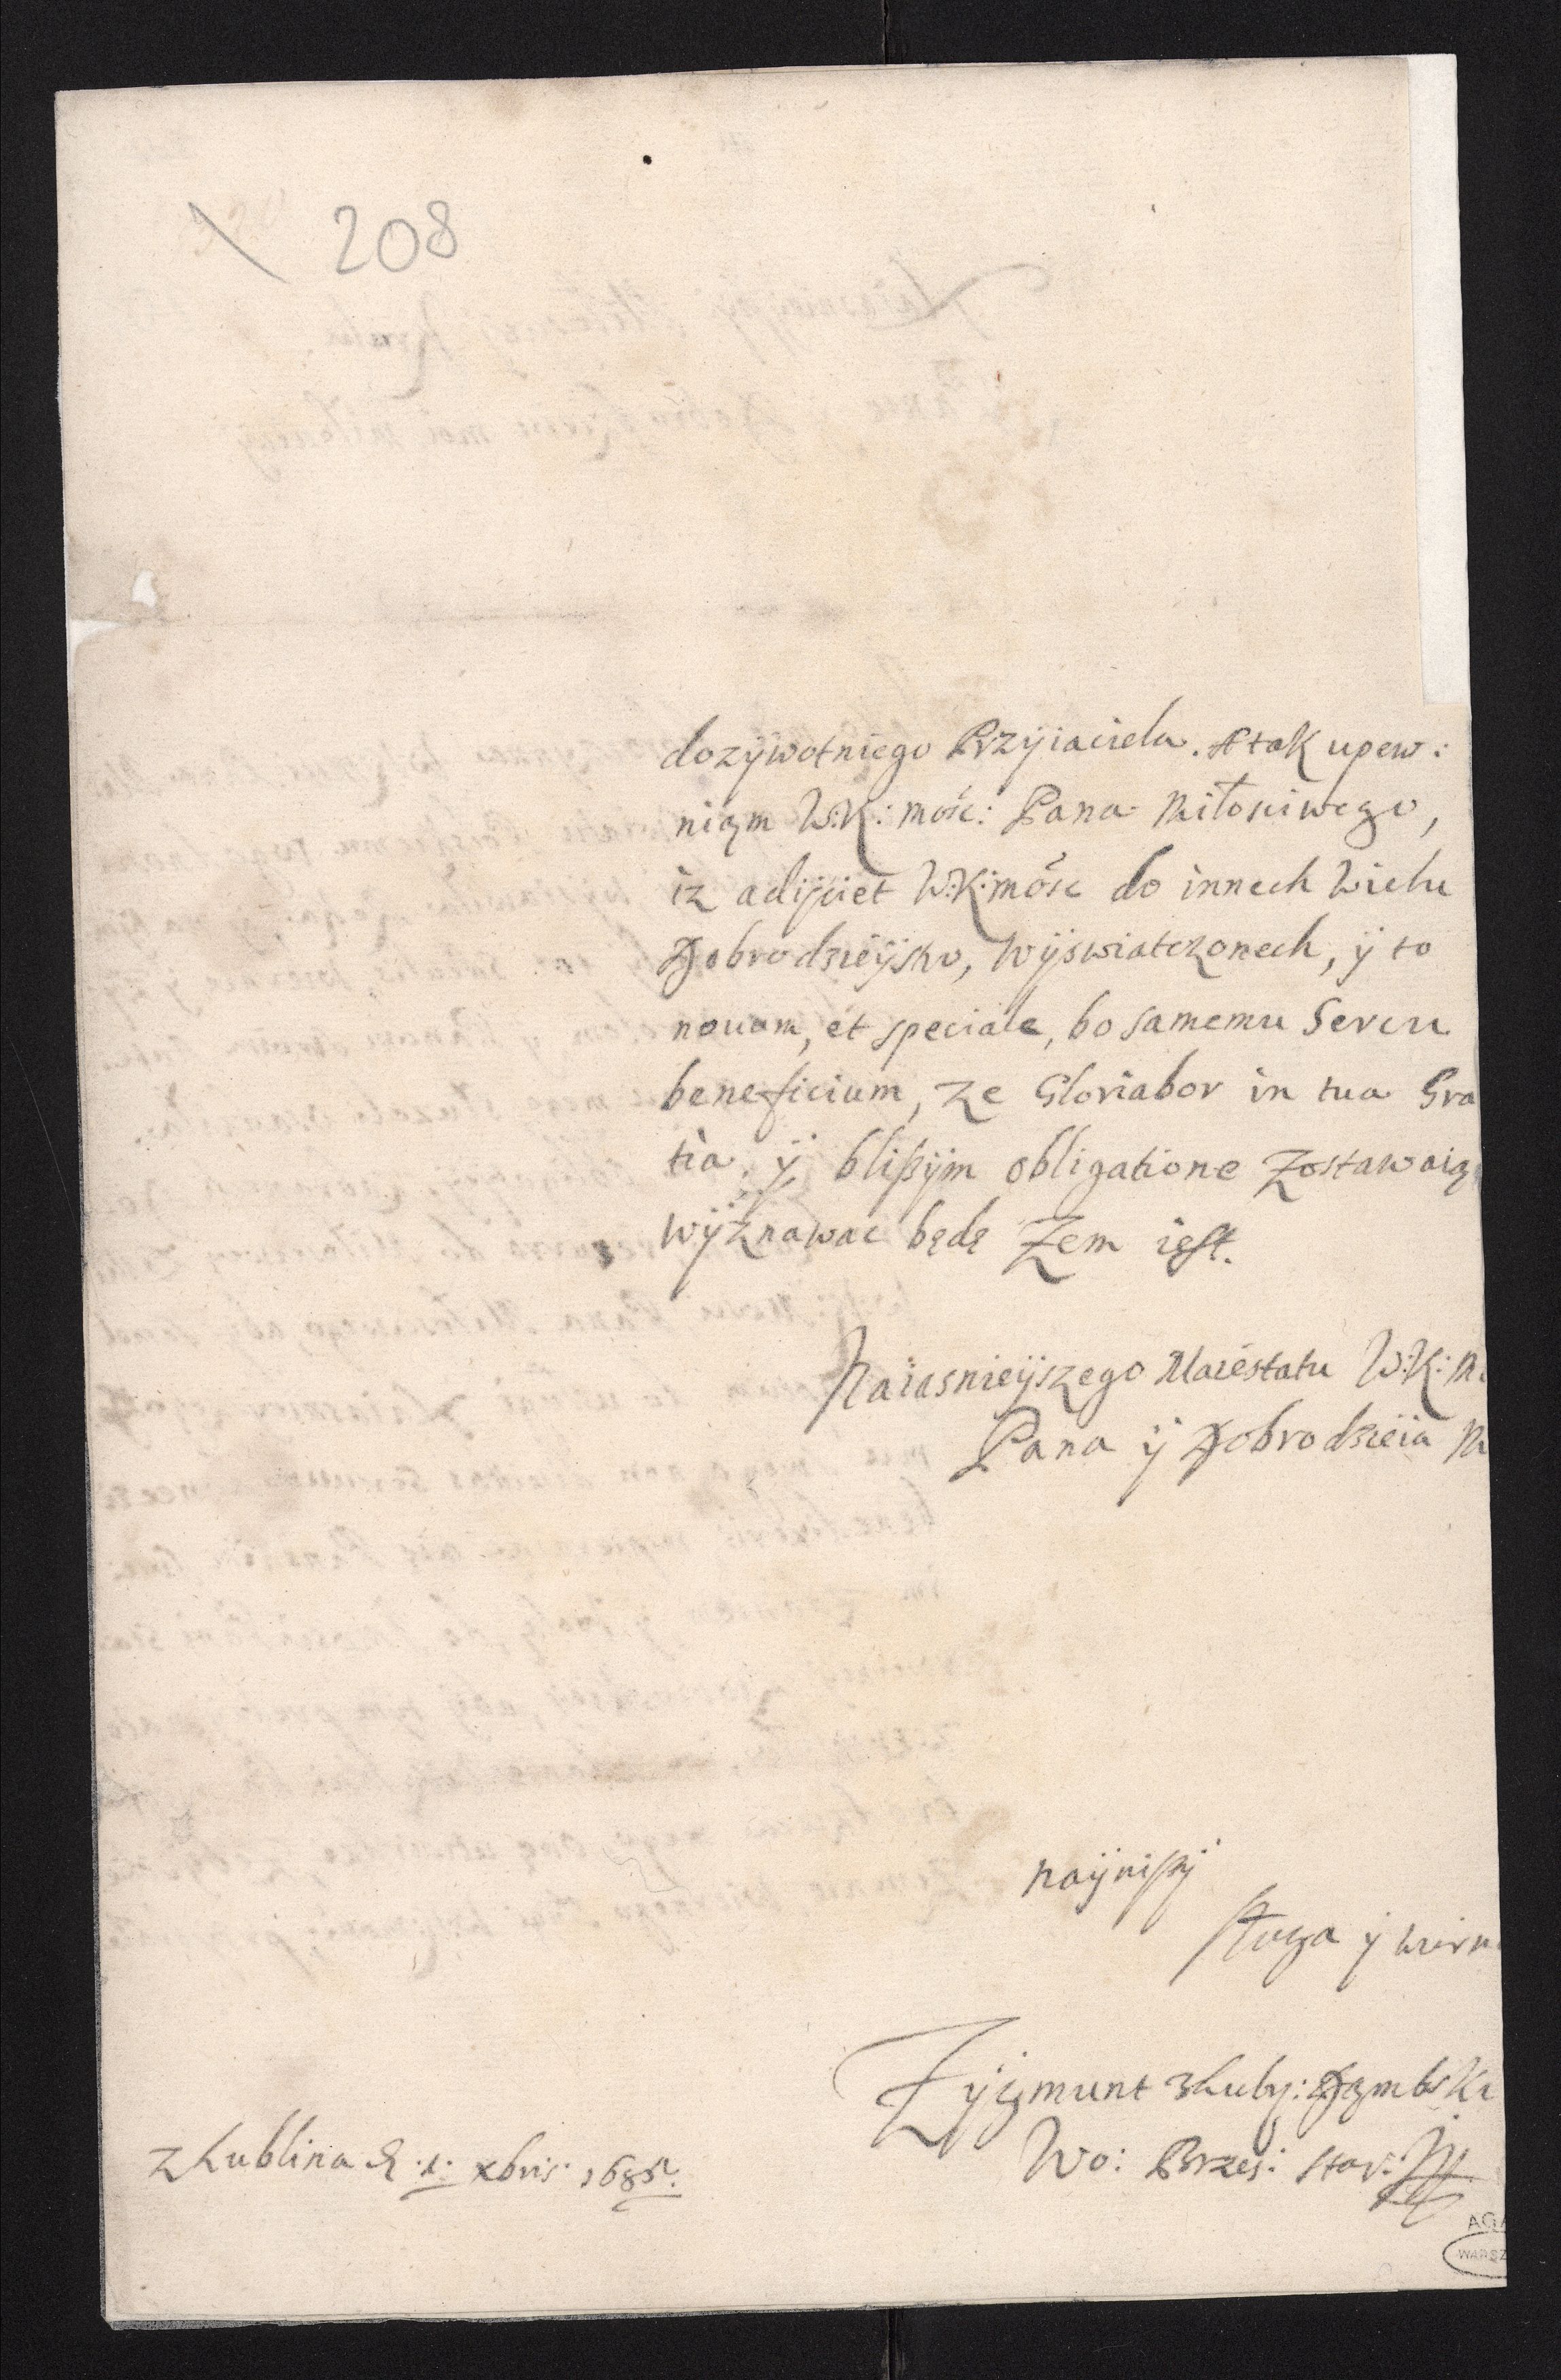 208
dozÿwotniego Przÿiaciela. A tak upew:
niąm W:K: mość: Pana Miłosciwego,
iz adijciet W:K:mośc do innech Wielu
Dobrodzieÿstw, Wÿswiatczonech, ÿ to
nouum, et speciale, bo samemu Sercu
beneficium, ze Gloriabor in tua Gra
tia, ÿ blißÿm obligatione Zostawaią
wÿznawac będę Zem iest.
Naiasnieÿszego Maiestatu W:K:M
Pana ÿ Dobrodzieia M
naÿnißÿ
sługa ÿ wiern
Zÿgmunt z Luby: Dąmbski
Wo: Brzes: star:
z Lublina D. 1. xbris. 1685.
AGA
WARSZ